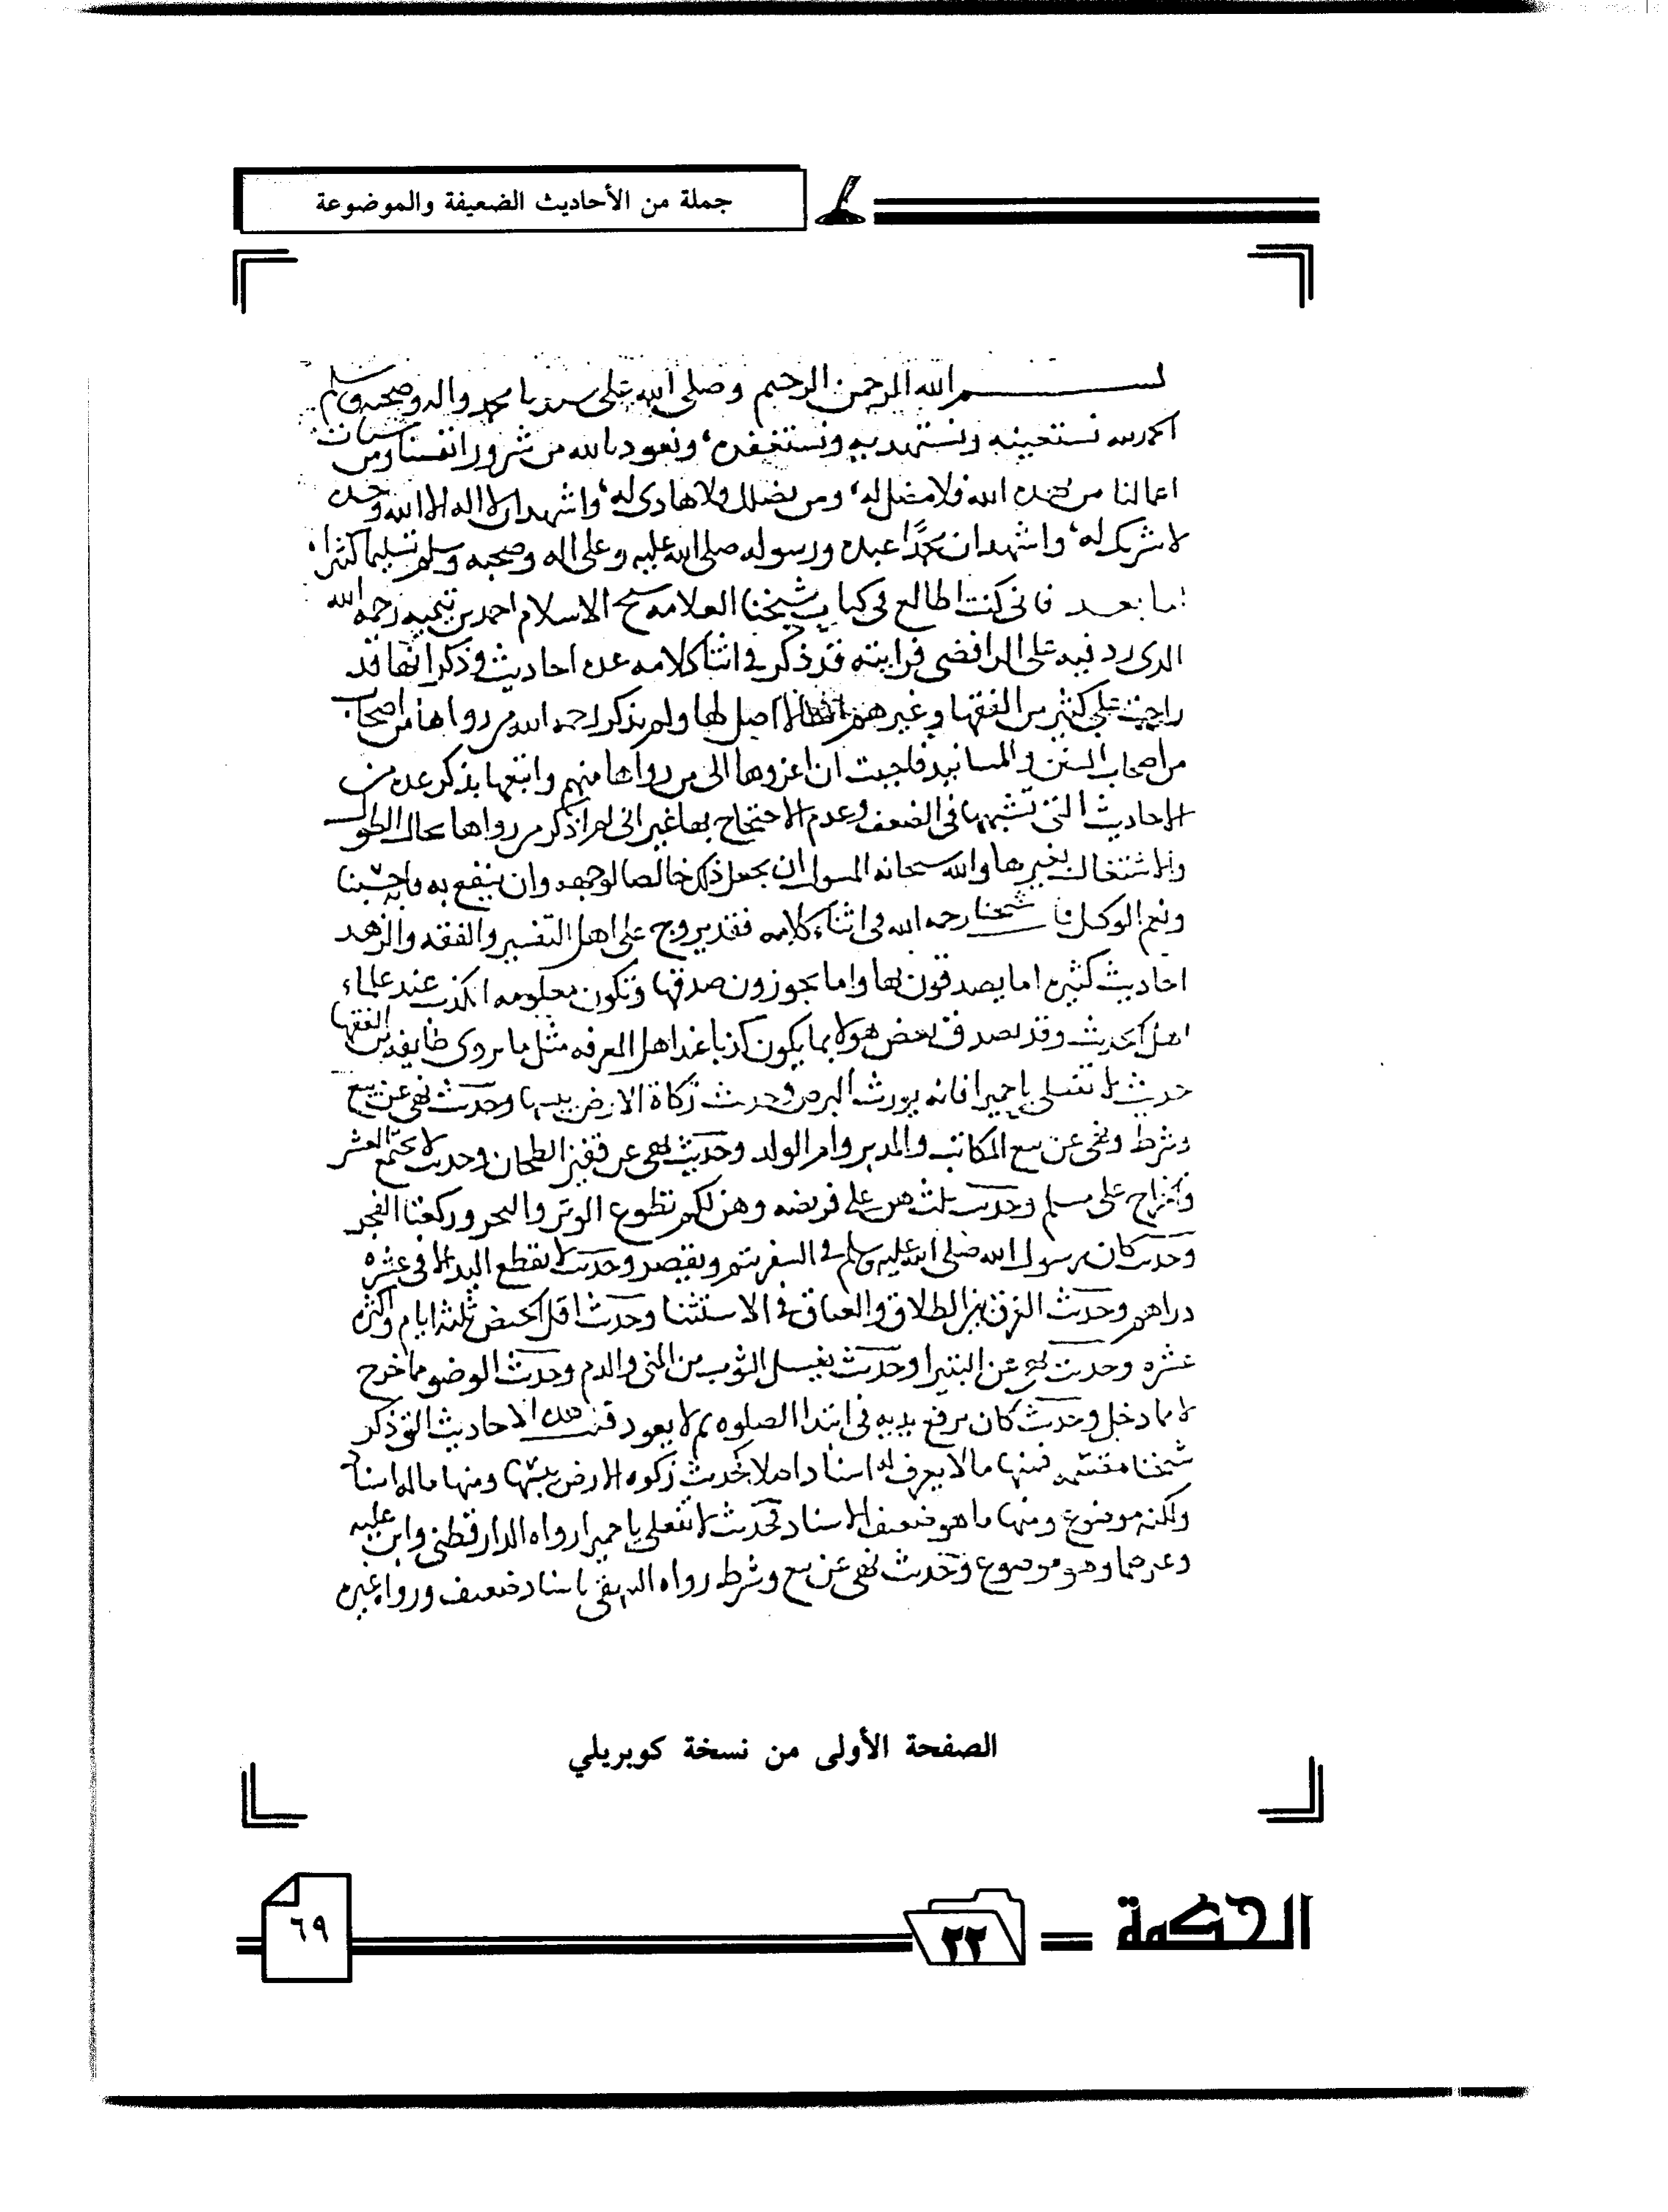 جملة من الأحاديث الضعيفة والموضوعة
بسم الله الرحمن الرحيم وصلى الله على سيدنا محمد واله وصحبه وسلم
الحمد لله نستعينه ونستهديه ونستغفره ونعوذ بالله من شرور انفسنا ومن سيئات
اعمالنا من يهده الله فلا مضل له ومن يضلل فلا هادى له واشهد ان لا اله الا الله وحده
لا شريك له واشهد ان محمدًا عبده ورسوله صلى الله عليه وعلى اله وصحبه وسلم تسليما كثيرا
اما بعد فانى كنت اطالع فى كتاب شيخنا العلامه شيخ الاسلام احمد بن تيميه رحمه الله
الذى رد فيه على الرافضى فرايته قد ذكر فى اثنا كلامه عده احاديث وذكر انها قد
راجت على كثير من الفقها وغيرهم لا اصل لها ولم يذكر رحمه الله من رواها من اصحاب
من اصحاب السنن والمسانيد فاحببت ان اعزوها الى من رواها منهم واتبعها بذكر عده من
الاحاديث التى تشبهها فى الضعف وعدم الاحتجاج بها غير انى لم اذكر من رواها بحال الطول
والاشتغال بغيرها والله سبحانه المسول ان يجعل ذلك خالصا لوجهه وان ينفع به
ونعم الوكيل شيخنا رحمه الله فى اثناء كلامه فقد يروج على اهل التفسير والفقه والزهد
احاديث كثيره اما يصدقون بها واما يجوزون صدقها وتكون معلومه الكذب عند علماء
اهل الحديث وقد يصدق بعض هولا بما يكون كذبا عند اهل المعرفه مثل ما يروى طايفه من الفقها
حديث لا تفعلى يا حميرا فانه يورث البرص وحديث زكاة الارض يبسها وحديث نهى عن بيع
وشرط ونهى عن بيع المكاتب والمدبر وام الولد وحديث نهى عن قفيز الطحان وحديث لا يجتمع العشر
والخراج على مسلم وحديث ثلث هن على فريضه وهن لكم تطوع الوتر والنحر وركعتا الفجر
وحديث كان رسول الله صلى الله عليه وسلم فى السفر يتم ويقصر وحديث لا تقطع اليد الا فى عشره
دراهم وحديث الفرق بين الطلاق والعتاق فى الاستثنا وحديث اقل الحيض ثلثه ايام واكثره
عشره وحديث نهى عن البتيرا وحديث يغسل الثوب من المنى والدم وحديث الوضو مما خرج
لا مما دخل وحديث كان يرفع يديه فى ابتدا الصلوه ثم لا يعود قلت هذه الاحاديث التى ذكر
شيخنا منقسمه فمنها ما لا يعرف له اسناد اصلا كحديث زكوه الارض يبسها ومنها ما له اسناد
ولكنه موضوع ومنها ما هو ضعيف الاسناد فحديث لا تفعلى يا حميرا رواه الدارقطنى وابن
وغيرهما وهو موضوع وحديث نهى عن بيع وشرط رواه البيهقى باسناد ضعيف ورواه غيره
الصفحة الأولى من نسخة كوبريلي
الحكمة ٢٢ ٦٩